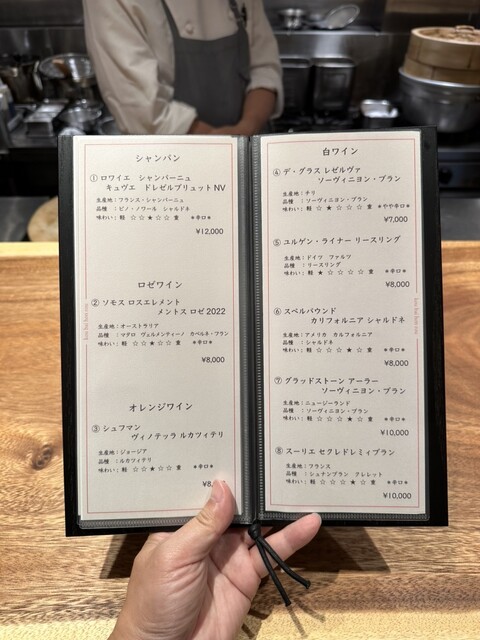 シャンパン
①ロワイエ シャンパーニュ
キュヴェ ドレゼルブリュットNV
生産地:フランス・シャンパーニュ
品種 :ピノ・ノワール シャルドネ
味わい:軽 ☆☆★☆☆ 重 *辛口*
¥12,000
ロゼワイン
②ソモス ロスエレメント
メントス ロゼ2022
生産地:オーストラリア
品種 :マタロ ヴェルメンティーノ カベルネ・フラン
味わい:軽 ☆☆★☆☆ 重 *辛口*
¥8,000
オレンジワイン
③シュフマン
ヴィノテッラ ルカツィテリ
生産地:ジョージア
品種 :ルカツィテリ
味わい:軽 ☆☆★☆☆ 重 *辛口*
¥8,
白ワイン
④デ・グラス レゼルヴァ
ソーヴィニヨン・ブラン
生産地:チリ
品種 :ソーヴィニヨン・ブラン
味わい:軽 ☆★☆☆☆ 重 *やや辛口*
¥7,000
⑤ユルゲン・ライナー リースリング
生産地:ドイツ ファルツ
品種 :リースリング
味わい:軽 ★☆☆☆☆ 重 *辛口*
¥8,000
⑥スペルバウンド
カリフォルニア シャルドネ
生産地:アメリカ カルフォルニア
品種 :シャルドネ
味わい:軽 ☆☆☆★☆ 重 *辛口*
¥8,000
⑦グラッドストーン アーラー
ソーヴィニヨン・ブラン
生産地:ニュージーランド
品種 :ソーヴィニヨン・ブラン
味わい:軽 ☆☆★☆☆ 重 *辛口*
¥10,000
⑧スーリエ セクレドレミィブラン
生産地:フランス
品種 :シュナンブラン テレレット
味わい:軽 ☆☆☆★☆ 重 *辛口*
¥10,000